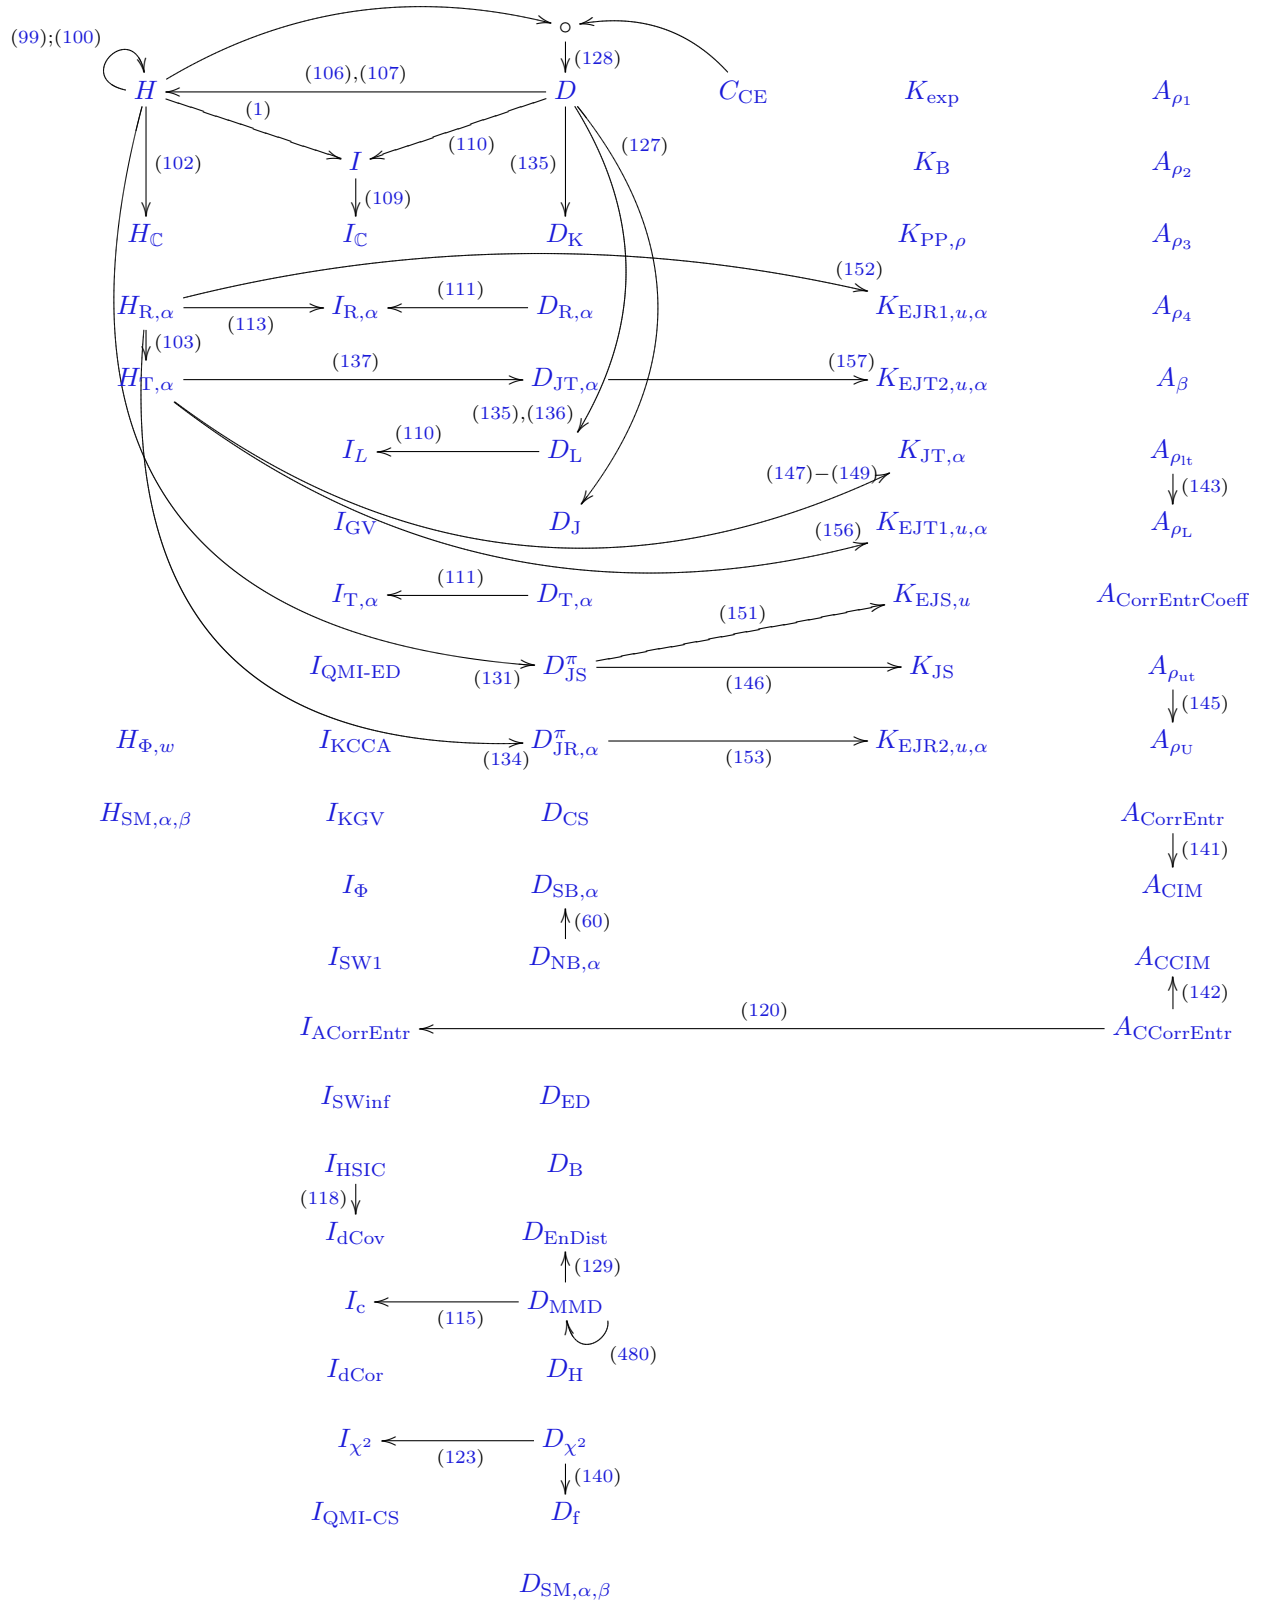 ∘
(99);(100)
(128)
(106),(107)
H D C_CE K_exp A_ρ₁
(1)
(110) (127)
(102) I (135) K_B A_ρ₂
(109)
H_ℂ I_ℂ D_K K_PP,ρ A_ρ₃
(152)
(111)
H_R,α I_R,α D_R,α K_EJR1,u,α A_ρ₄
(113)
(103)
(137) (157)
H_T,α D_JT,α K_EJT2,u,α A_β
(135),(136)
(110)
I_L D_L K_JT,α A_ρ_lt
(147)–(149)
(143)
I_GV D_J K_EJT1,u,α A_ρ_L
(156)
(111)
I_T,α D_T,α K_EJS,u A_CorrEntrCoeff
(151)
I_QMI-ED D^π_JS K_JS A_ρ_ut
(131) (146)
(145)
H_Φ,w I_KCCA D^π_JR,α K_EJR2,u,α A_ρ_U
(134) (153)
H_SM,α,β I_KGV D_CS A_CorrEntr
(141)
I_Φ D_SB,α A_CIM
(60)
I_SW1 D_NB,α A_CCIM
(142)
(120)
I_ACorrEntr A_CCorrEntr
I_SWinf D_ED
I_HSIC D_B
(118)
I_dCov D_EnDist
(129)
I_c D_MMD
(115)
(480)
I_dCor D_H
I_χ² D_χ²
(123)
(140)
I_QMI-CS D_f
D_SM,α,β